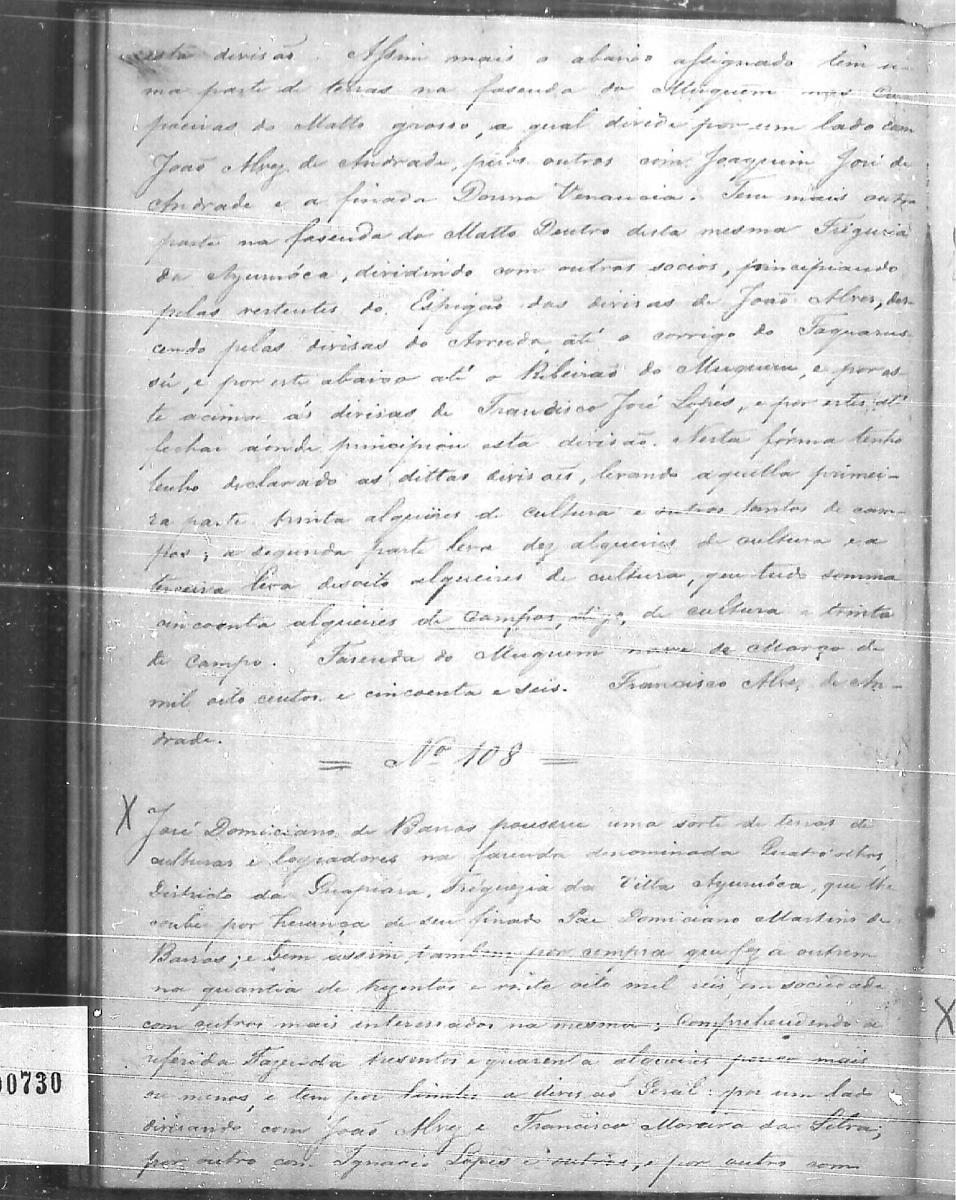 esta divisão. Assim mais o abaixo assignado tem u-
ma parte de terras na fasenda do Muquem nas Ca-
poeiras do Matto grosso, a qual divide por um lado com
João Alvez de Andrade, pelos outros com Joaquim José de
Andrade e a finada Donna Venancia. Tem mais outra
parte na fasenda do Matto Dentro desta mesma Fregusia
da Ayuruóca, dividindo com outros socios, principiando
pelas vertentes do Espigão das divisas de João Alves, des-
cendo pelas divisas do Arruda, até o corrigo do Taquarus-
sú, e por este abaixo até o Ribeirão do Muquem, e por es-
te acima ás divisas de Francisco José Lopes, e por estes até
fechar aónde principiou esta divisão. Nesta fórma tenho
tenho declarado as dittas divisoēs, levando aquella primei-
ra parte trinta alqueires de cultura e outros tantos de cam-
pos; a segunda parte leva dez alqueires de cultura e a
terceira leva desoito alqueires de cultura, que tudo somma
cincoenta alqueires de campos, digo, de cultura e trinta
de campo. Fasenda do Muquem nove de Março de
mil oito centos e cincoenta e seis. Francisco Alvez de An-
drade.
= Nº 108 =
X José Domiciano de Barros possue uma sorte de terras de
culturas e logradores na fazenda denominada Quatro olhos,
Districto da Guapiara, Freguezia da Villa Ayuruóca, que lhe
coube por herança de seu finado Pae Domiciano Martins de
Barros; e bem assim tambem por compra que fez a outrem
na quantia de trezentos e vinte oito mil reis, em sociedade
com outros mais interessados na mesma; Comprehendendo a X
referida Fazenda tresentos e quarenta alqueires pouco mais
ou menos, e tem por limites a divisão Geral: por um lado
divisando com João Alvez e Francisco Moreira da Silva;
por outro com Ignacio Lopes e outros, e por outro com
00730